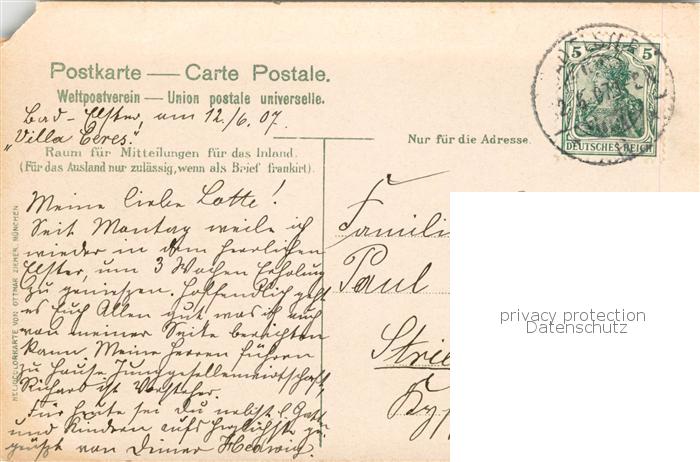 Postkarte — Carte Postale.
Weltpostverein — Union postale universelle.
Bad-Elster, am 12./6. 07.
„Villa Ceres."
Raum für Mitteilungen für das Inland.
(Für das Ausland nur zulässig, wenn als Brief frankirt).
Nur für die Adresse.
5 5
DEUTSCHES REICH
Meine liebe Lotte!
Seit Montag weile ich
wieder in dem herrlichen
Elster, um 3 Wochen Erholung
zu geniessen. Hoffentlich geht
es Euch Allen gut was ich auch
von meiner Seite berichten
kann. Meine Herren führen
zu Hause Junggesellenwirtschaft,
Richard ist Vorsteher.
Für heute sei Du nebst l. Gatt
und Kindern aufs herzlichste ge-
grüsst von Deiner Hedwig.
Famili
Paul
Strie
Ky
HELIOCOLORKARTE VON OTTMAR ZIEHER, MÜNCHEN
privacy protection
Datenschutz